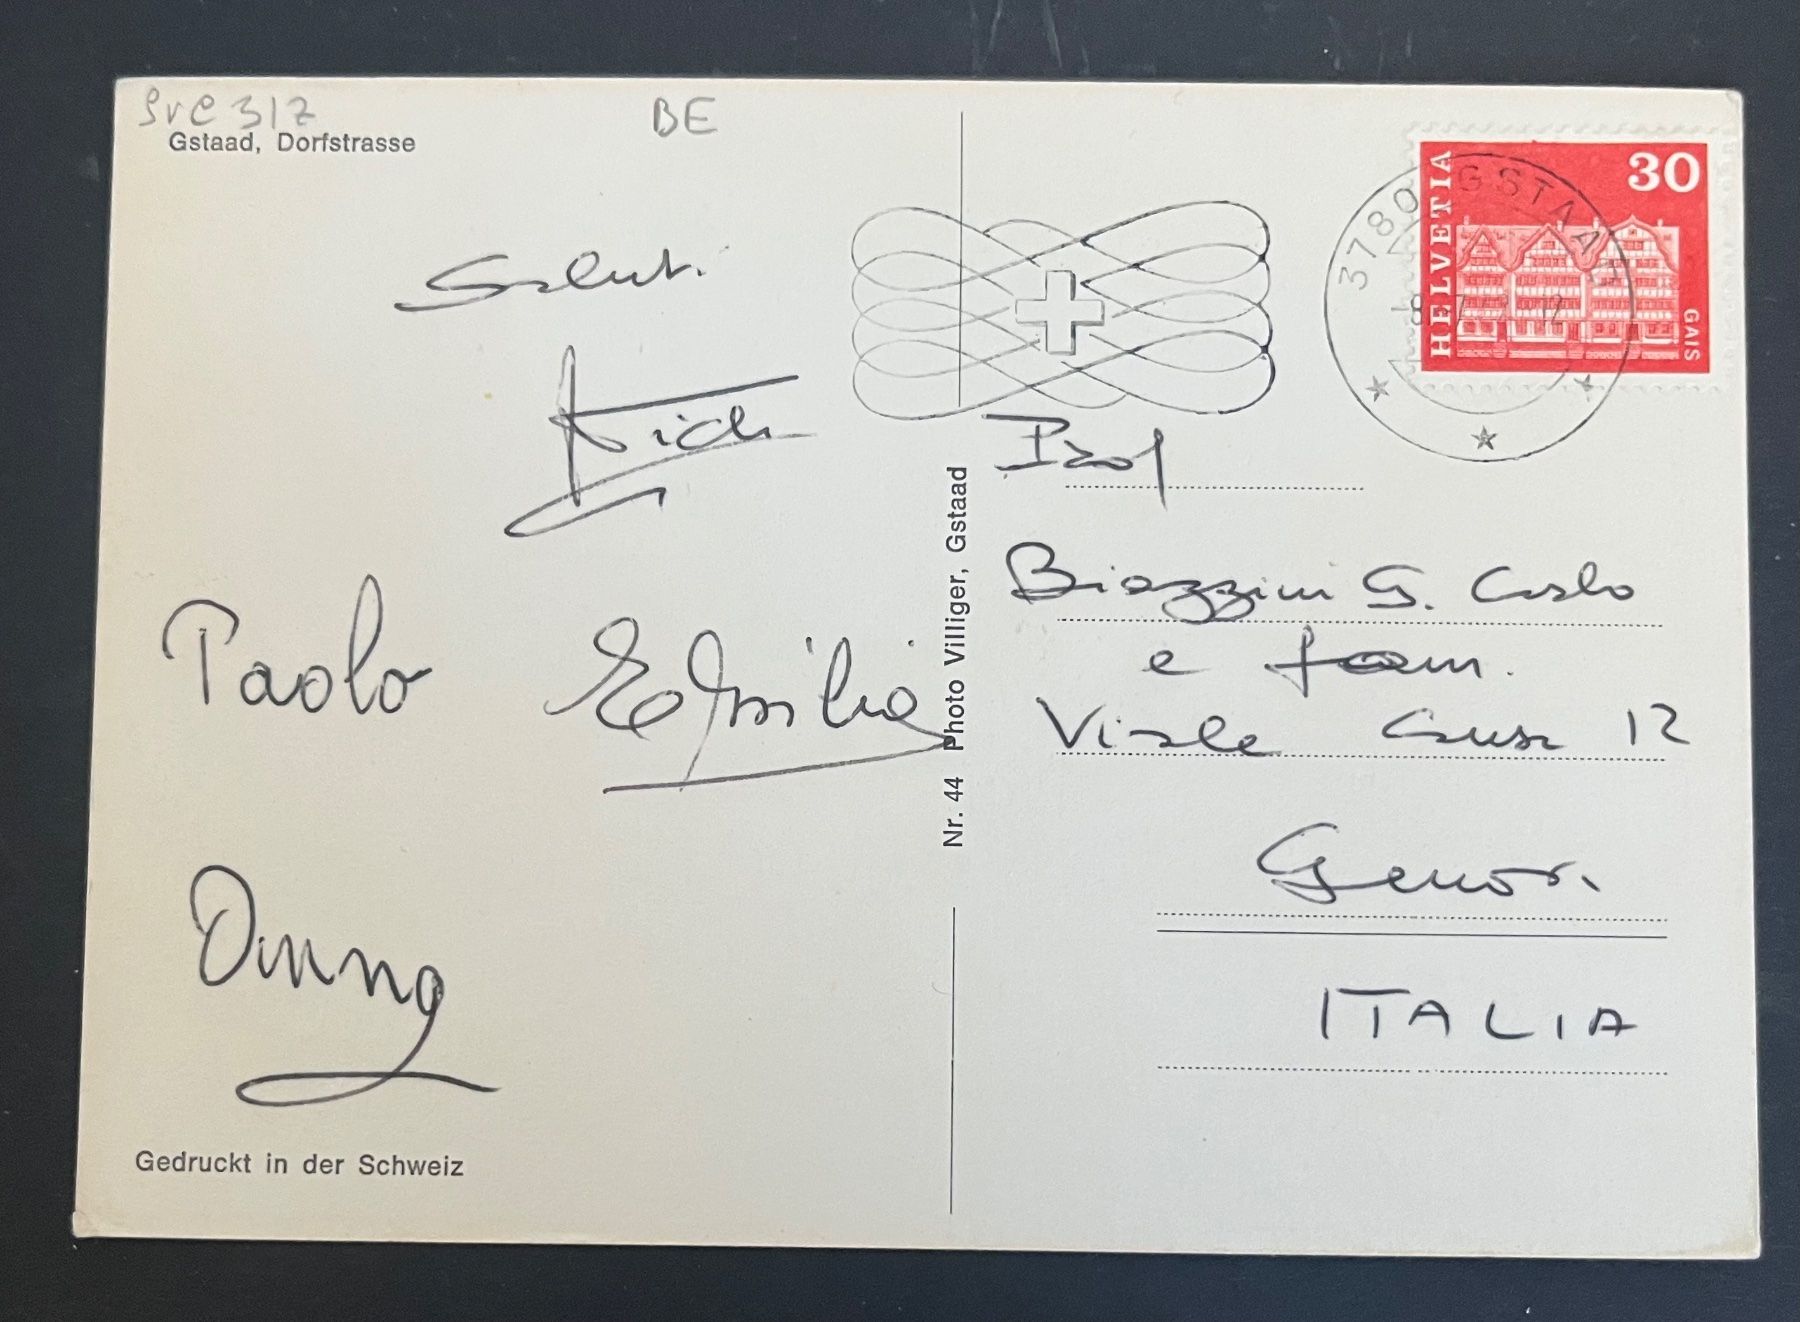 BE
Gstaad, Dorfstrasse
Saluti
Paolo
Emilia
Gedruckt in der Schweiz
Nr. 44 Photo Villiger, Gstaad
HELVETIA
30
GAIS
3780 GSTAAD
Prof
Biazzini G. Carlo
e fam.
Viale Causa 12
Genova
ITALIA